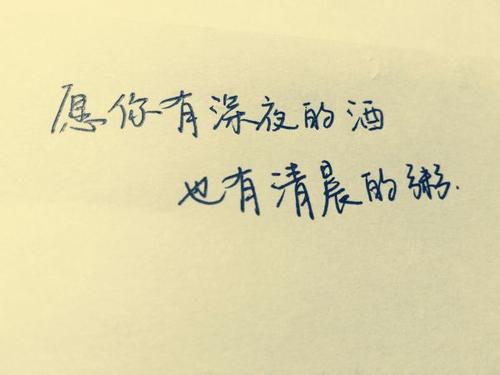 愿你有深夜的酒
也有清晨的粥.